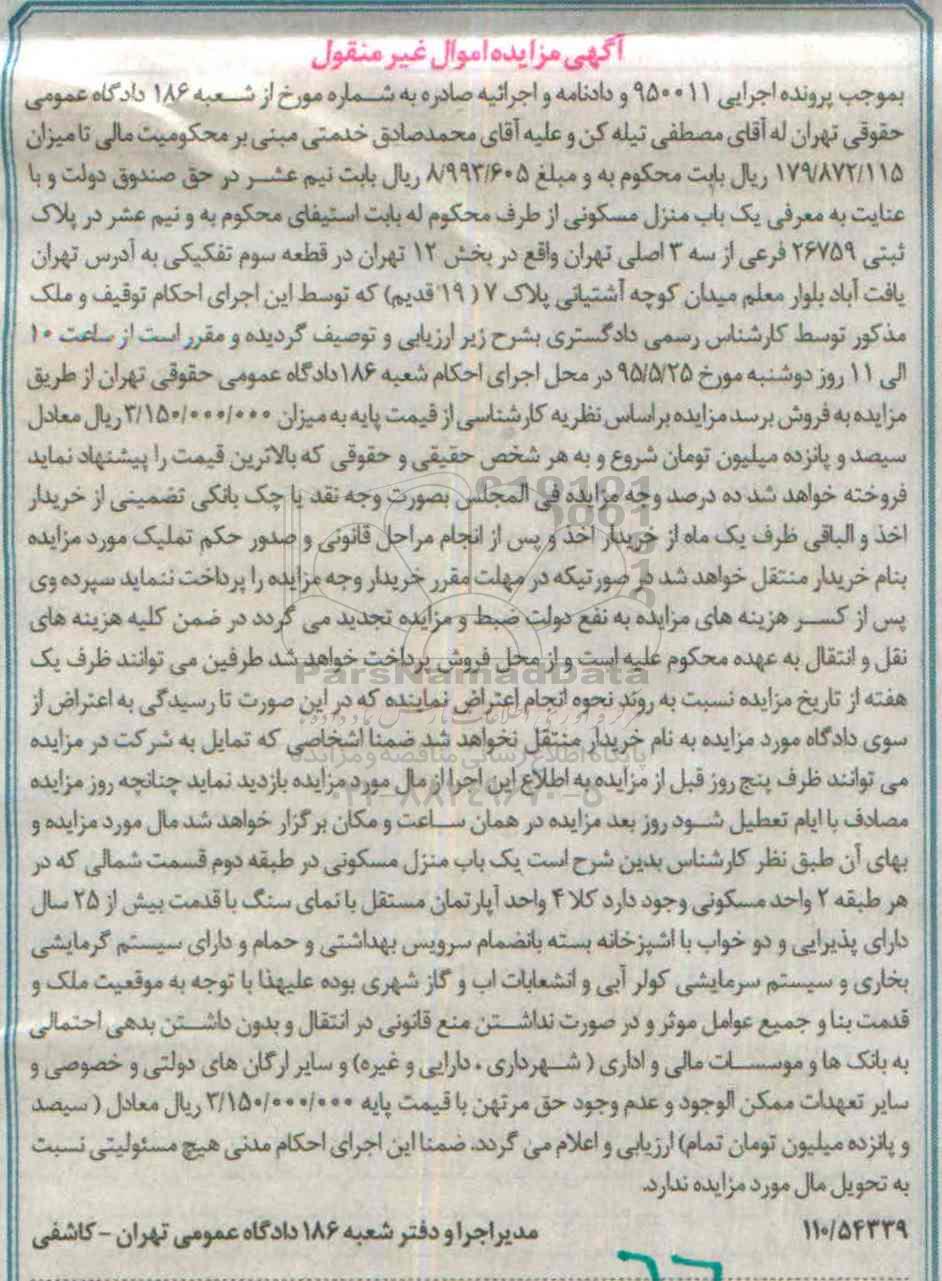 آگهی مزایده اموال غیر منقول
بموجب پرونده اجرایی ۹۵۰۰۱۱ و دادنامه و اجرائیه صادره به شماره مورخ از شعبه ۱۸۶ دادگاه عمومی
حقوقی تهران له آقای مصطفی تیله کن و علیه آقای محمدصادق خدمتی مبنی بر محکومیت مالی تا میزان
۱۷۹/۸۷۲/۱۱۵ ریال بابت محکوم به و مبلغ ۸/۹۹۳/۶۰۵ ریال بابت نیم عشر در حق صندوق دولت و با
عنایت به معرفی یک باب منزل مسکونی از طرف محکوم له بابت استیفای محکوم به و نیم عشر در پلاک
ثبتی ۲۶۷۵۹ فرعی از سه ۳ اصلی تهران واقع در بخش ۱۲ تهران در قطعه سوم تفکیکی به آدرس تهران
یافت آباد بلوار معلم میدان کوچه آشتیانی پلاک ۷ ( ۱۹ قدیم) که توسط این اجرای احکام توقیف و ملک
مذکور توسط کارشناس رسمی دادگستری بشرح زیر ارزیابی و توصیف گردیده و مقرر است از ساعت ۱۰
الی ۱۱ روز دوشنبه مورخ ۹۵/۵/۲۵ در محل اجرای احکام شعبه ۱۸۶ دادگاه عمومی حقوقی تهران از طریق
مزایده به فروش برسد مزایده براساس نظریه کارشناسی از قیمت پایه به میزان ۳/۱۵۰/۰۰۰/۰۰۰ ریال معادل
سیصد و پانزده میلیون تومان شروع و به هر شخص حقیقی و حقوقی که بالاترین قیمت را پیشنهاد نماید
فروخته خواهد شد ده درصد وجه مزایده فی المجلس بصورت وجه نقد یا چک بانکی تضمینی از خریدار
اخذ و الباقی ظرف یک ماه از خریدار اخذ و پس از انجام مراحل قانونی و صدور حکم تملیک مورد مزایده
بنام خریدار منتقل خواهد شد در صورتیکه در مهلت مقرر خریدار وجه مزایده را پرداخت ننماید سپرده وی
پس از کسر هزینه های مزایده به نفع دولت ضبط و مزایده تجدید می گردد در ضمن کلیه هزینه های
نقل و انتقال به عهده محکوم علیه است و از محل فروش پرداخت خواهد شد طرفین می توانند ظرف یک
ParsNamadData
هفته از تاریخ مزایده نسبت به روند نحوه انجام اعتراض نماینده که در این صورت تا رسیدگی به اعتراض از
سوی دادگاه مورد مزایده به نام خریدار منتقل نخواهد شد ضمنا اشخاصی که تمایل به شرکت در مزایده
پایگاه اطلاع رسانی مناقصه و مزایده
می توانند ظرف پنج روز قبل از مزایده به اطلاع این اجرا از مال مورد مزایده بازدید نماید چنانچه روز مزایده
مصادف با ایام تعطیل شود روز بعد مزایده در همان ساعت و مکان برگزار خواهد شد مال مورد مزایده و
بهای آن طبق نظر کارشناس بدین شرح است یک باب منزل مسکونی در طبقه دوم قسمت شمالی که در
هر طبقه ۲ واحد مسکونی وجود دارد کلا ۴ واحد آپارتمان مستقل با نمای سنگ با قدمت بیش از ۲۵ سال
دارای پذیرایی و دو خواب با اشپزخانه بسته بانضمام سرویس بهداشتی و حمام و دارای سیستم گرمایشی
بخاری و سیستم سرمایشی کولر آبی و انشعابات اب و گاز شهری بوده علیهذا با توجه به موقعیت ملک و
قدمت بنا و جمیع عوامل موثر و در صورت نداشتن منع قانونی در انتقال و بدون داشتن بدهی احتمالی
به بانک ها و موسسات مالی و اداری ( شهرداری ، دارایی و غیره) و سایر ارگان های دولتی و خصوصی و
سایر تعهدات ممکن الوجود و عدم وجود حق مرتهن با قیمت پایه ۳/۱۵۰/۰۰۰/۰۰۰ ریال معادل ( سیصد
و پانزده میلیون تومان تمام) ارزیابی و اعلام می گردد. ضمنا این اجرای احکام مدنی هیچ مسئولیتی نسبت
به تحویل مال مورد مزایده ندارد.
۱۱۰/۵۴۳۳۹ مدیر اجرا و دفتر شعبه ۱۸۶ دادگاه عمومی تهران - کاشفی